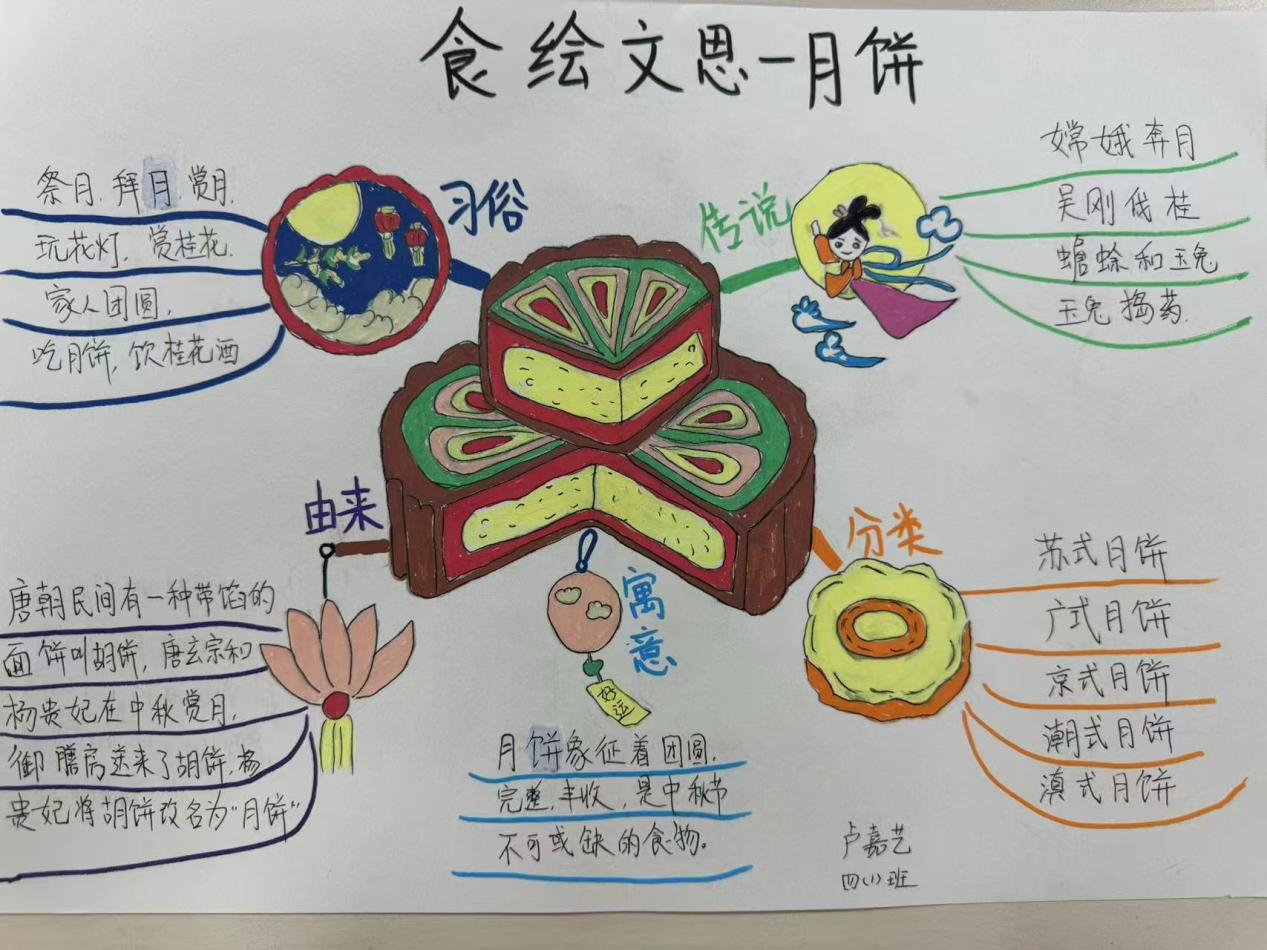 食绘文思-月饼
习俗
祭月.拜月.赏月.
玩花灯,赏桂花.
家人团圆,
吃月饼,饮桂花酒
传说
嫦娥奔月
吴刚伐桂
蟾蜍和玉兔
玉兔捣药.
由来
唐朝民间有一种带馅的
面饼叫胡饼,唐玄宗和
杨贵妃在中秋赏月,
御膳房送来了胡饼.杨
贵妃将胡饼改名为“月饼”
寓意
好运
月饼象征着团圆.
完整,丰收,是中秋节
不可或缺的食物。
分类
苏式月饼
广式月饼
京式月饼
潮式月饼
滇式月饼
卢嘉艺
四(1)班